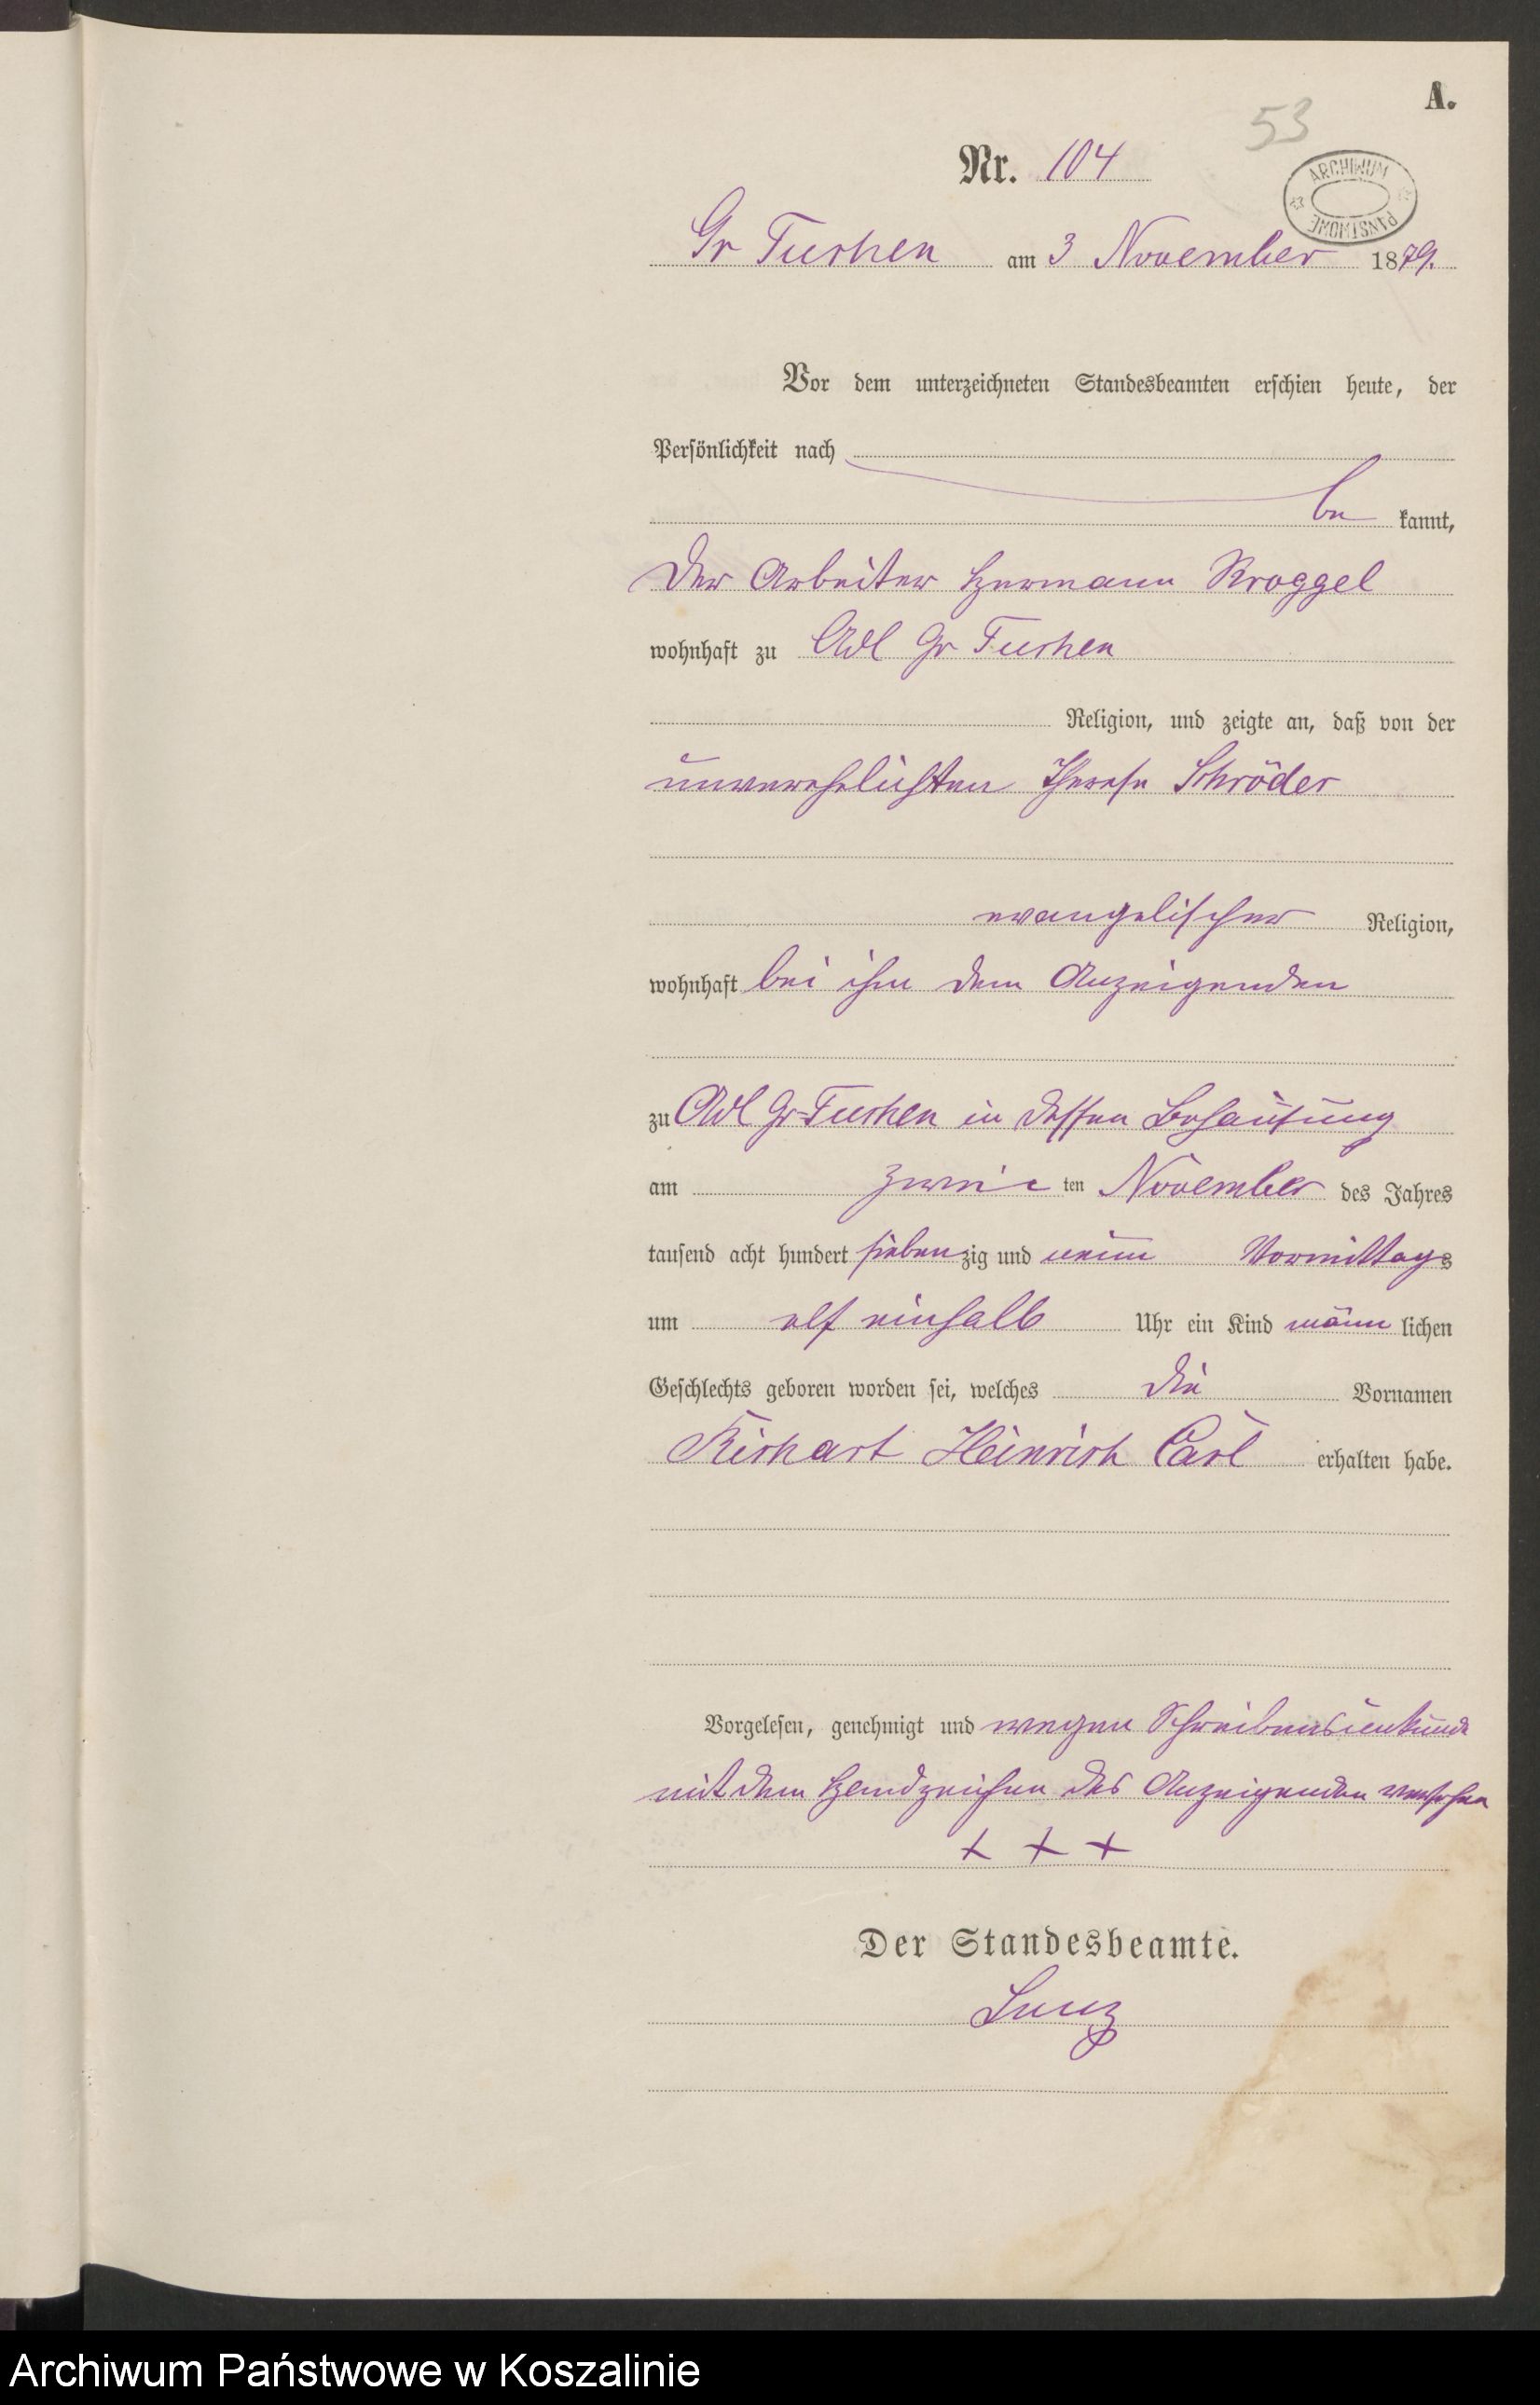 A.
53
Nr. 104
ARCHIWUM PAŃSTWOWE
Gr Tuchen am 3 November 1879.
Vor dem unterzeichneten Standesbeamten erschien heute, der
Persönlichkeit nach
be kannt,
der Arbeiter Hermann Kroggel
wohnhaft zu Adl Gr Tuchen
Religion, und zeigte an, daß von der
unverehelichten Therese Schröder
evangelischer Religion,
wohnhaft bei ihm dem Anzeigenden
zu Adl Gr-Tuchen in dessen Behausung
am zwei ten November des Jahres
tausend acht hundert siebenzig und neun Vormittags
um elf einhalb Uhr ein Kind männ lichen
Geschlechts geboren worden sei, welches die Vornamen
Richart Heinrich Carl erhalten habe.
Vorgelesen, genehmigt und wegen Schreibensunkunde
mit dem Handzeichen des Anzeigenden versehen
+ + +
Der Standesbeamte.
Archiwum Państwowe w Koszalinie